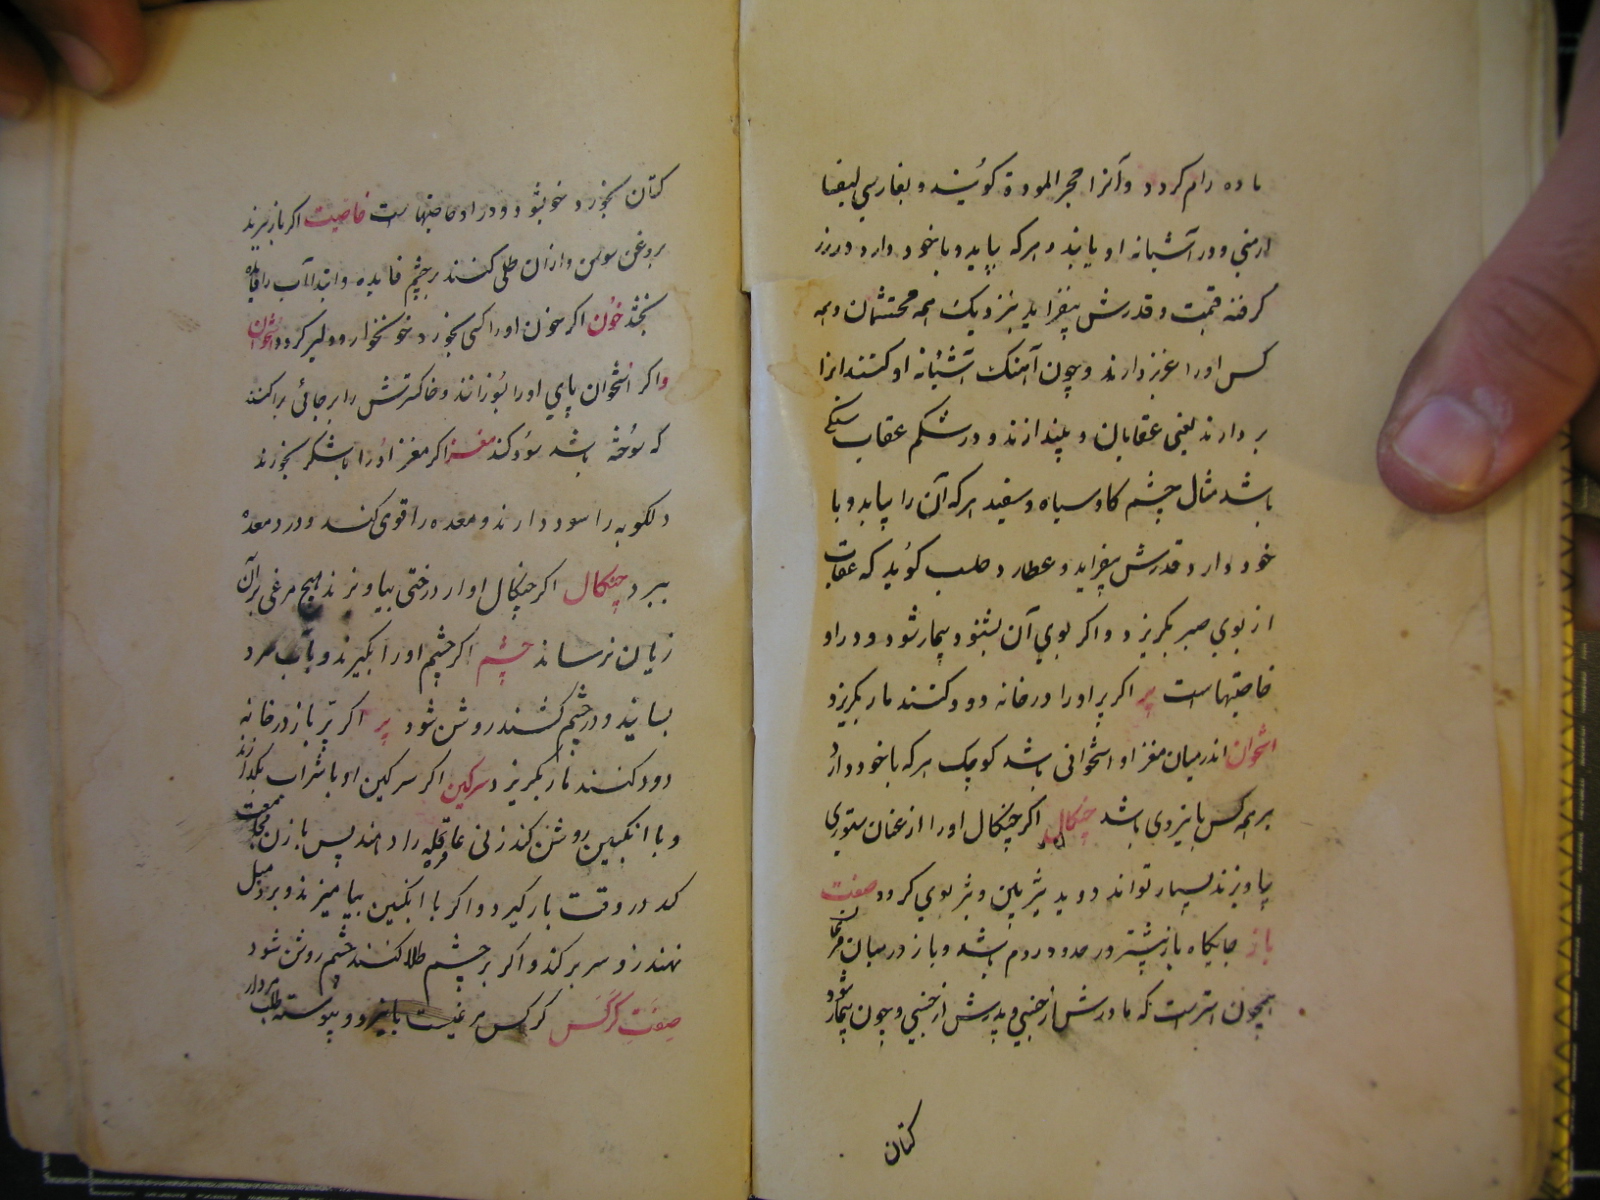 ماده رام کردد وآنرا حجر المودة کویند و بفارسی لیفنا
ارمنی و در آشیانه او یابند و هرکه بیابد و با خود دارد در زر
کرفته قیمت و قدرش بیفزاید بنزدیک همه محتشمان و همه
کس او را عزیز دارند و چون آهنک آشیانه او کنند انرا
بر دارند یعنی عقابان و بیندازند و در شکم عقاب سنکی
باشد مثال چشم کاو سیاه و سفید هرکه آن را بیابد و با
خود دارد قدرش بیفزاید و عطارد حلب کوید که عقاب
از بوی صبر بکریزد و اکر بوی آن بشنود بیمار شود و در او
خاصیتهاست پر اکر پر او را در خانه دود کنند مار بکریزد
استخوان اندر میان مغز او استخوانی باشد کوچک هرکه با خود دارد
بر همه کس با نیروی باشد چنکال اکر چنکال او را از عنان ستوری
بیاویزند بسیار تواند دوید شیرین و شربوی کردد صفت
باز جایکاه باز بیشتر در حدود روم باشد و باز در میان مرغان
همچون استرست که مادرش از جنسی و پدرش از جنسی و چون بیمار شود
کتان
کتان بخورد خوب شود و در او خاصیتهاست خاصیت اکر باز بیرند
بروغن سوسن و ازان طلی کنند بر چشم فایده و ابتدا آب را فایده
بخشد خون اکر خون او را کسی بخورد خونخوار و دلیر کردد استخوان
واکر استخوان پای او را بسوزانند و خاکسترش را بر جائی پراکنند
که سوخته باشد سود کند مغز اکر مغز او را با شکر بخورند
دلکوبه را سود دارند و معده را قوی کند و درد معده
ببرد چنکال اکر چنکال او از درختی بیاویزند هیچ مرغی بر آن
زیان نرساند چشم اکر چشم او را بکیرند و بآب سرد
بسایند و در چشم کشند روشن شود پر اکر پر باز در خانه
دود کنند مار بکریزد سرکین اکر سرکین او با شراب بکدازند
و با انکبین روشن کند زنی عاقله را دهند پس با زن مجامعت
کند در وقت بار کیرد و اکر با انکبین بیامیزند و بر دمل
نهند زود سر بر کند و اکر بر چشم طلا کنند چشم روشن شود
صفت کرکس کرکس مرغیست با نیرو و پیوسته طلب مردار